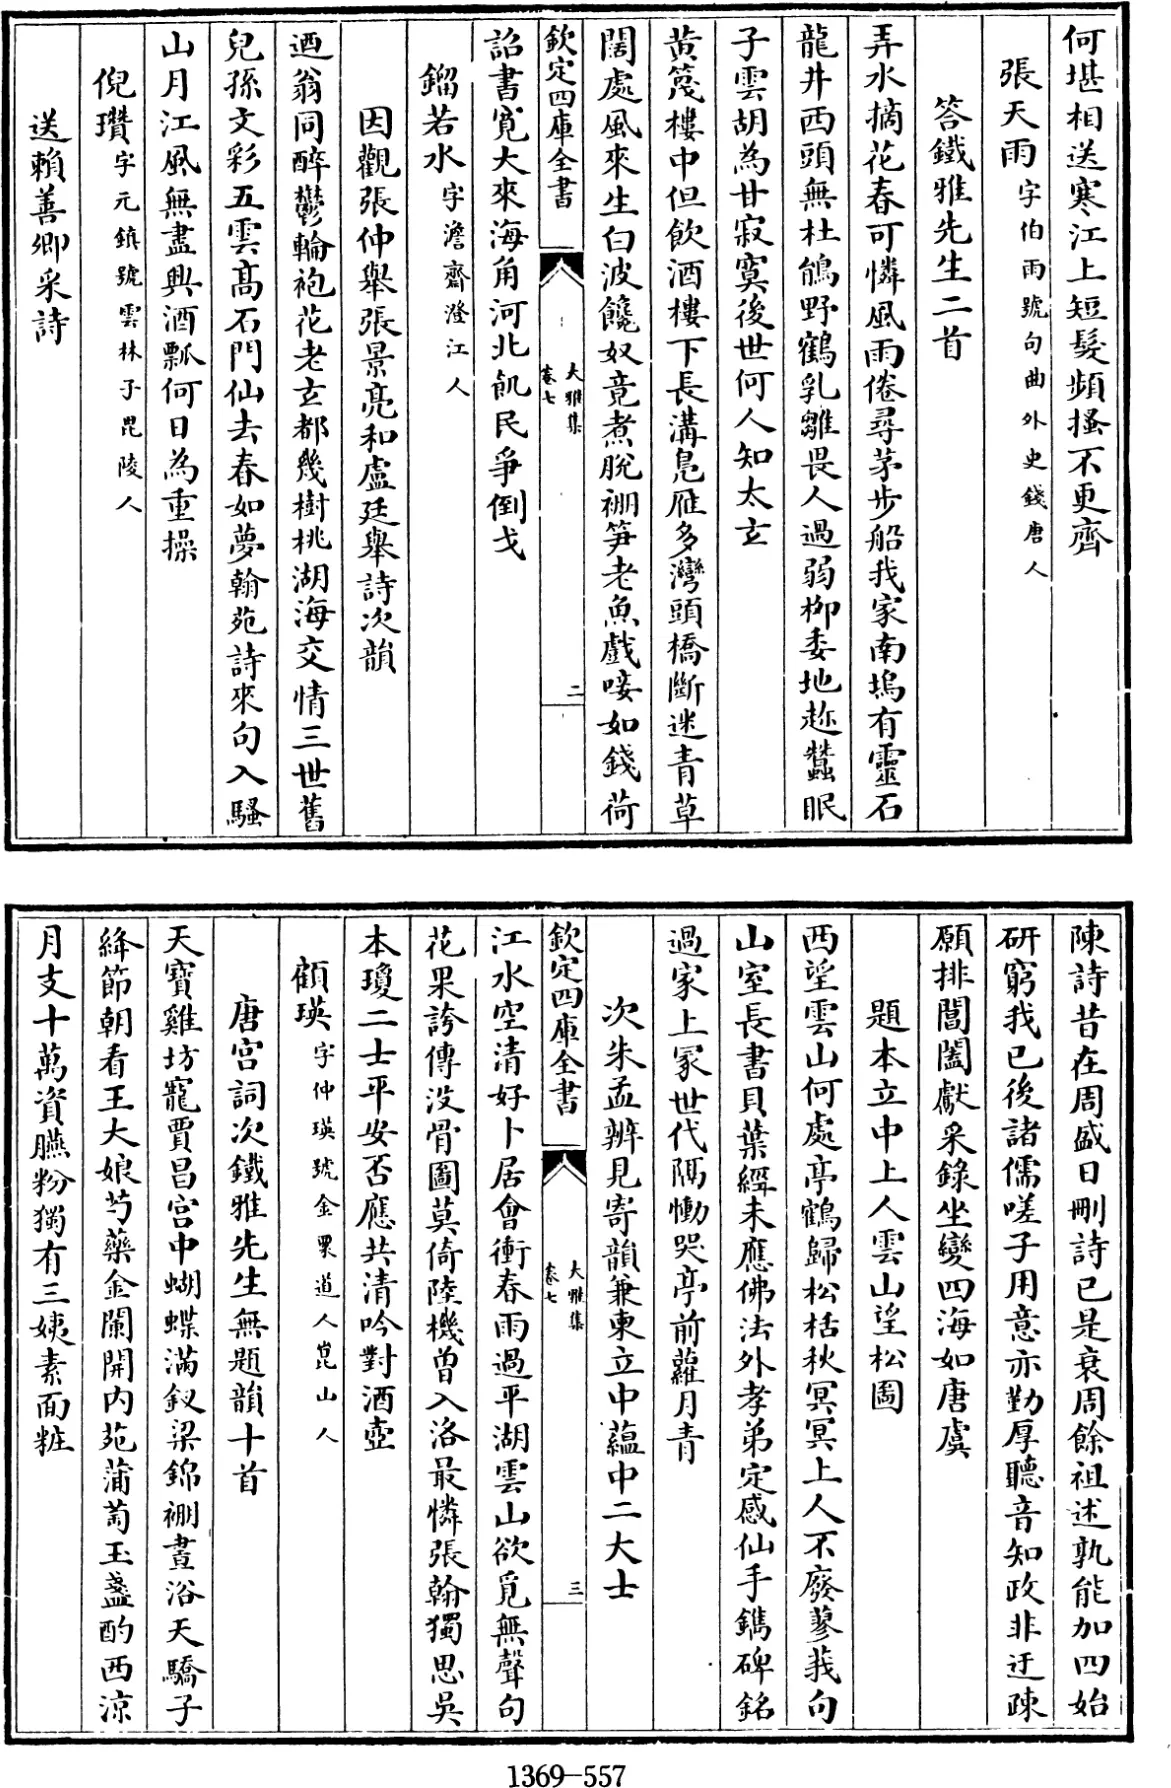 何堪相送寒江上短髮頻搔不更齊
張天雨字伯雨號句曲外史錢唐人
答鐵雅先生二首
弄水摘花春可憐風雨倦尋茅步船我家南塢有靈石
龍井西頭無杜鵑野鶴乳雛畏人過弱柳委地趂蠶眠
子雲胡為甘寂寞後世何人知太玄
黄篾樓中但飲酒樓下長溝鳬雁多灣頭橋斷迷青草
闊處風來生白波饞奴竟煮脱禂笋老魚戲唼如錢荷
欽定四庫全書
大雅集
卷七
二
詔書寛大來海角河北飢民爭倒戈
鎦若水字澹齋澄江人
因觀張仲舉張景亮和盧廷舉詩次韻
迺翁同醉鬱輪袍花老玄都幾樹桃湖海交情三世舊
兒孫文彩五雲髙石門仙去春如夢翰苑詩來句入騷
山月江風無盡興酒瓢何日為重操
倪瓚字元鎮號雲林子毘陵人
送賴善卿采詩
陳詩昔在周盛日刪詩已是衰周餘祖述孰能加四始
研窮我已後諸儒嗟子用意亦勤厚聽音知政非迂疎
願排閶闔獻采錄坐變四海如唐虞
題本立中上人雲山望松圖
西望雲山何處亭鶴歸松栝秋冥冥上人不廢蓼莪句
山室長書貝葉經未應佛法外孝弟定感仙手鐫碑銘
過家上冢世代隔慟哭亭前蘿月青
次朱孟辨見寄韻兼柬立中藴中二大士
欽定四庫全書
大雅集
卷七
三
江水空清好卜居會衝春雨過平湖雲山欲覓無聲句
花果誇傳没骨圖莫倚陸機曾入洛最憐張翰獨思吳
本瓊二士平安否應共清吟對酒壺
顧瑛字仲瑛號金粟道人崑山人
唐宫詞次鐵雅先生無題韻十首
天寶雞坊寵賈昌宫中蝴蝶滿釵梁錦禂晝浴天驕子
絳節朝看王大娘芍藥金闌開内苑蒲萄玉盞酌西涼
月支十萬資臙粉獨有三姨素面粧
1369—557